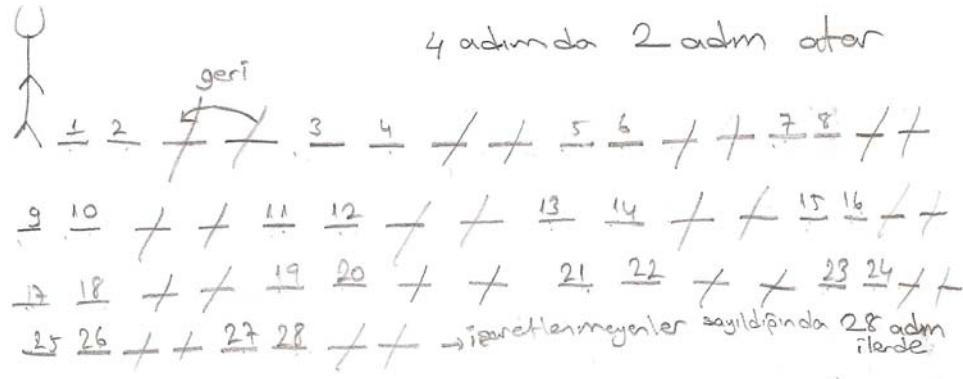 4 adımda 2 adım atar
geri
1 2 3 4 5 6 7 8
9 10 11 12 13 14 15 16
17 18 19 20 21 22 23 24
25 26 27 28 → işaretlenmeyenler sayıldığında 28 adım
ilerde